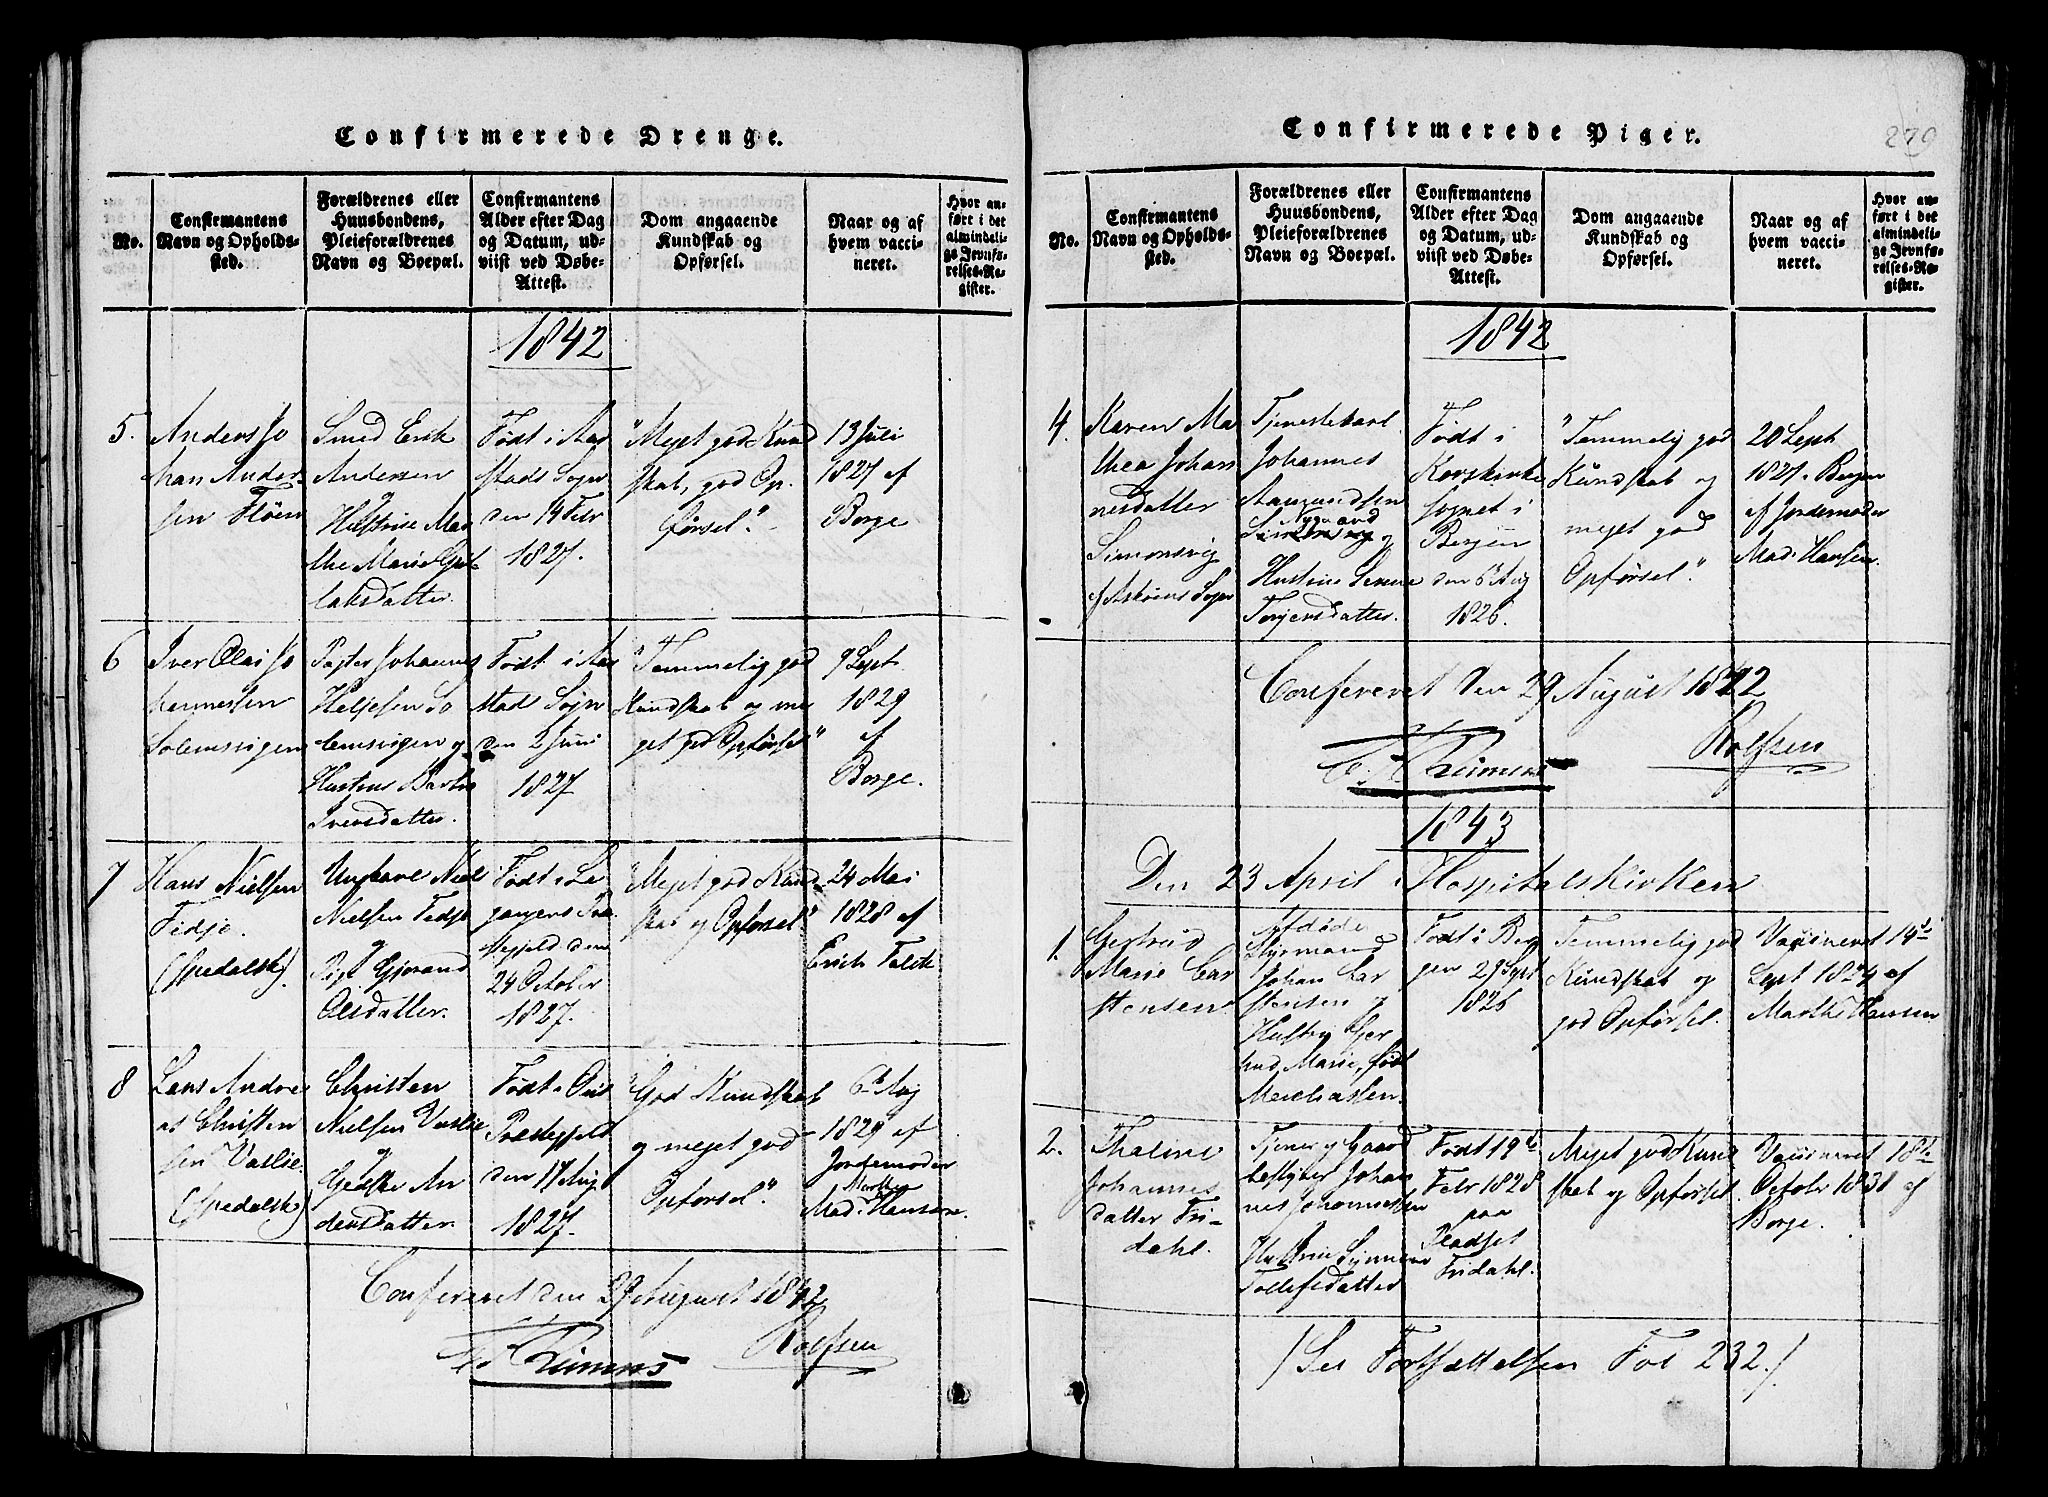 Confirmerede Drenge.
No.
Confirmantens
Navn og Opholds-
sted.
Forældrenes eller
Huusbondens,
Pleieforældrenes
Navn og Boepæl.
Confirmantens
Alder efter Dag
og Datum, ud-
viist ved Døbe-
Attest.
Dom angaaende
Kundskab og
Opførsel.
Naar og af
hvem vacci-
neret.
Hvor an-
ført i det
almindeli-
ge Jevnfø-
relses-Re-
gister.
1842
5.
Anders Jo
han Ander-
sen Fløen
Smed Erik
Andersen
Hustrue Mar
the Marie
laksdatter.
Født i Aar
stads Sogn
den 14 Febr
1827.
"Meget god Kund
skab, god Op.
førsel."
13 Juli
1827 af
Borge
6
Iver Olai Jo
hannessen
Solemsvigen
Pagter Johannes
Heljesen So
lemsvigen og
Hustrue
Iversdatter.
Født i Aar
stads Sogn
den 2 Juni
1827
"Temmelig god
Kundskab og me
get god Opførsel"
9 Sept
1829
af
Borge.
7
Hans Nielsen
Fidje.
(spedalsk).
Ungkarl Niels
Nielsen Fidje
og
Pige Gjorand
Olsdatter.
Født i Le
gangers Præ
stegjeld den
24 October
1827.
"Meget god Kund
skab og Opførsel."
24 Mai
1828 af
Erich Falck
8
Lars Andre
as Christen
sen Vaslie.
(spedalsk)
Christen
Nielsen Vaslie
og
Gidske An
dersdatter.
Født i
Præstegjeld
den 17 Aug
1827.
"God Kundskab
og meget god
Opførsel."
6te Aug
1829 af
Jordemoder
Marthe
Mad. Hansen.
Confereret den 29 August 1842
Rolfsen
Confirmerede Piger.
279
No.
Confirmantens
Navn og Opholds-
sted.
Forældrenes eller
Huusbondens,
Pleieforældrenes
Navn og Boepæl.
Confirmantens
Alder efter Dag
og Datum, ud-
viist ved Døbe-
Attest.
Dom angaaende
Kundskab og
Opførsel.
Naar og af
hvem vacci-
neret.
Hvor an-
ført i det
almindeli-
ge Jevnfø-
relses-Re-
gister.
1842
4.
Karen Ma
thea Johan
nesdatter
Simonsvig
af Askøens Sogn
Tjenestekarl
Johannes
Aamundsen
Nygaard
og
Hustrue Sirene
Torjersdatter.
Født i
Korskirke
sognet i
Bergen
den 6te Aug
1826.
"Temmelig god
Kundskab og
meget god
Opførsel."
20 Sept
1827 i Bergen
af Jordemoder
Mad. Hansen.
Confereret den 29 August 1842
Rolfsen
1843
Den 23 April i Hospitalskirken
1.
Gertrud
Marie Car
stensen
Afdøde
Styrmand
Johan Car
stensen og
Hustru Ger
trud Marie, født
Født i Ber
gen 29 Sept
1826
Temmelig god
Kundskab og
god Opførsel.
Vaccineret 14de
Sept 1824 af
Marthe Hansen
2.
Thaline
Johannes
datter Fri-
dahl.
Tjener og Gaard
bestyrer Johan
nes Johannessen
Hustrue Synneve
Tollefsdatter
Født 19de
Febr 1828
paa
Pladset
Fridahl.
Meget god Kund
skab og Opførsel.
Vaccineret 18de
Octobr 1831 af
Borge.
/See Fortsættelsen Fol 232./